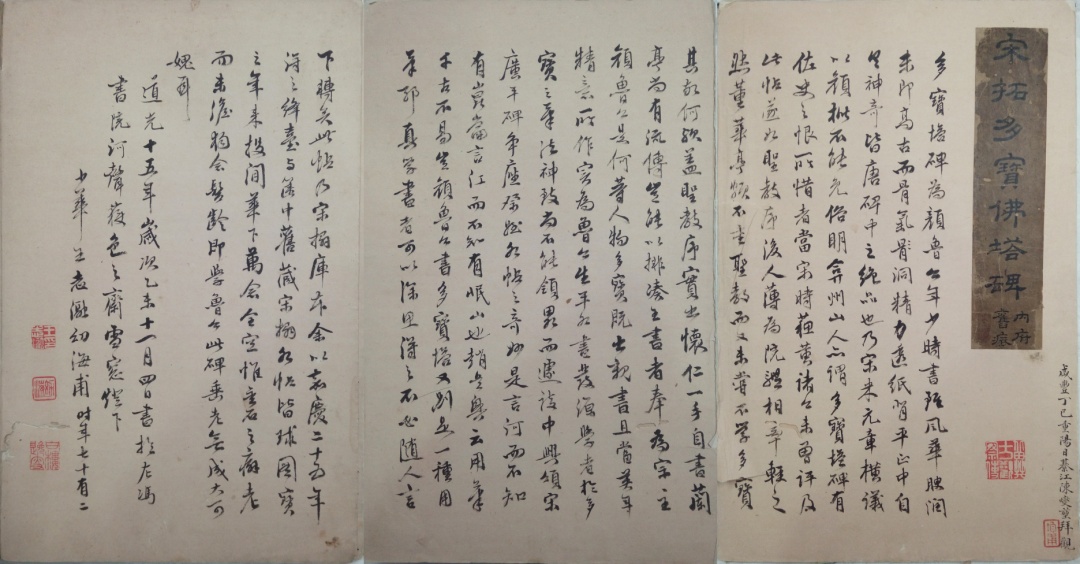 宋拓多寶佛塔碑
內府
舊藏
咸豐丁巳重陽日綦江陳拜觀
多寶塔碑為顏魯公年少時書雖風華腴潤
未即高古而骨氣骨洞精力透紙背平正中自
生神奇皆唐碑中之絕品也乃宋米元章橫議
以顏楷不能免俗明弇州山人亦謂多寶塔碑有
佐史之恨所惜者當宋時蘇黃諸公未曾評及
此帖遂如聖教序後人薄為院體相率輕之
然董華亭頗不重聖教而又未嘗不學多寶
其故何歟蓋聖教序實出懷仁一手自書蘭
亭尚有流傳豈能以排湊之書者奉為宗主
顏魯公是何等人物多寶既出親書且當英年
精意所作實為魯公生平各書發源學者於多
寶之筆法神致尚不能領畧而遽談中興頌宋
廣平碑爭座祭姪各帖之奇妙是言河而不知
有崑崙言江而不知有岷山也趙吳興云用筆
千古不易豈顏魯公書多寶塔又別是一種用
筆耶真學書者可以深思得之不必隨人言
下轉矣此帖乃宋搨庫本余以嘉慶二十五年
得之絳臺與篋中舊藏宋搨各帖皆球圖寶
之年來投閒筆下萬念全空惟書之癖老
而未澹猶念髫齡即學魯公此碑垂老無成大可
媿耳
道光十五年歲次乙未十一月四日書於左馮
書院河聲嶽色之齋雪窓燈下
少華王志瀜幼海甫時年七十有二